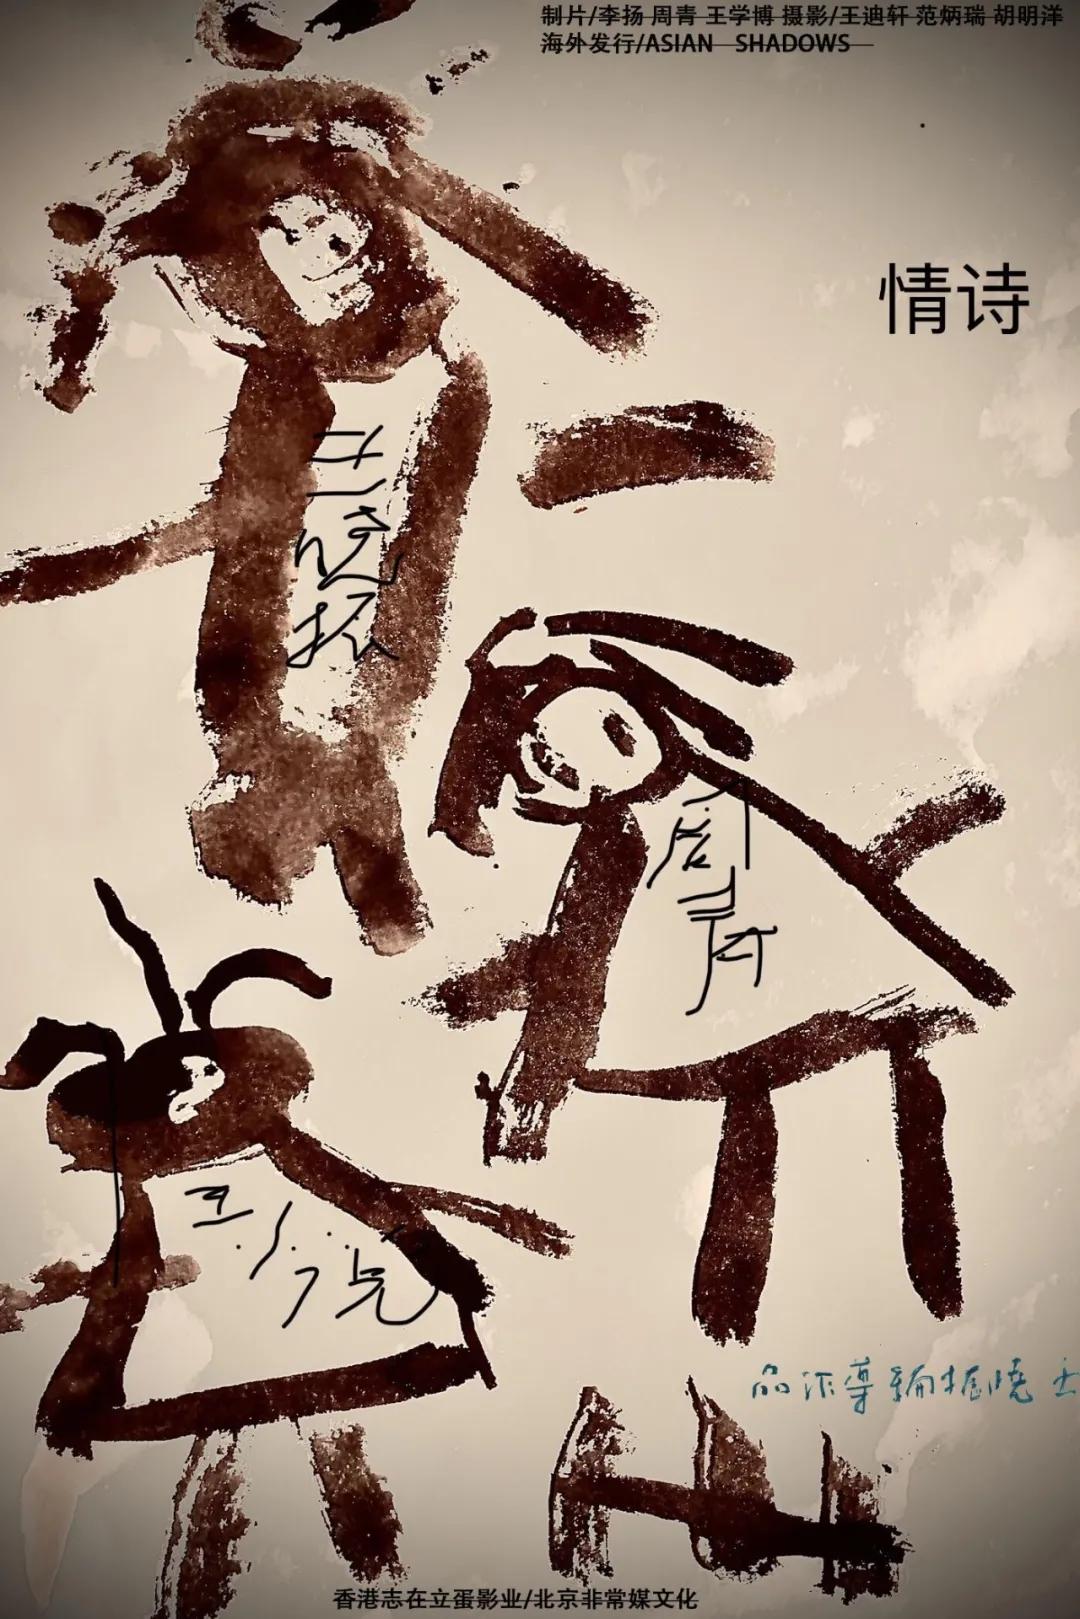 制片/李扬 周青 王学博 摄影/王迪轩 范炳瑞 胡明洋
海外发行/ASIAN SHADOWS
情诗
王晓振
周青
王小光
品作導編振曉王
香港志在立蛋影业/北京非常媒文化